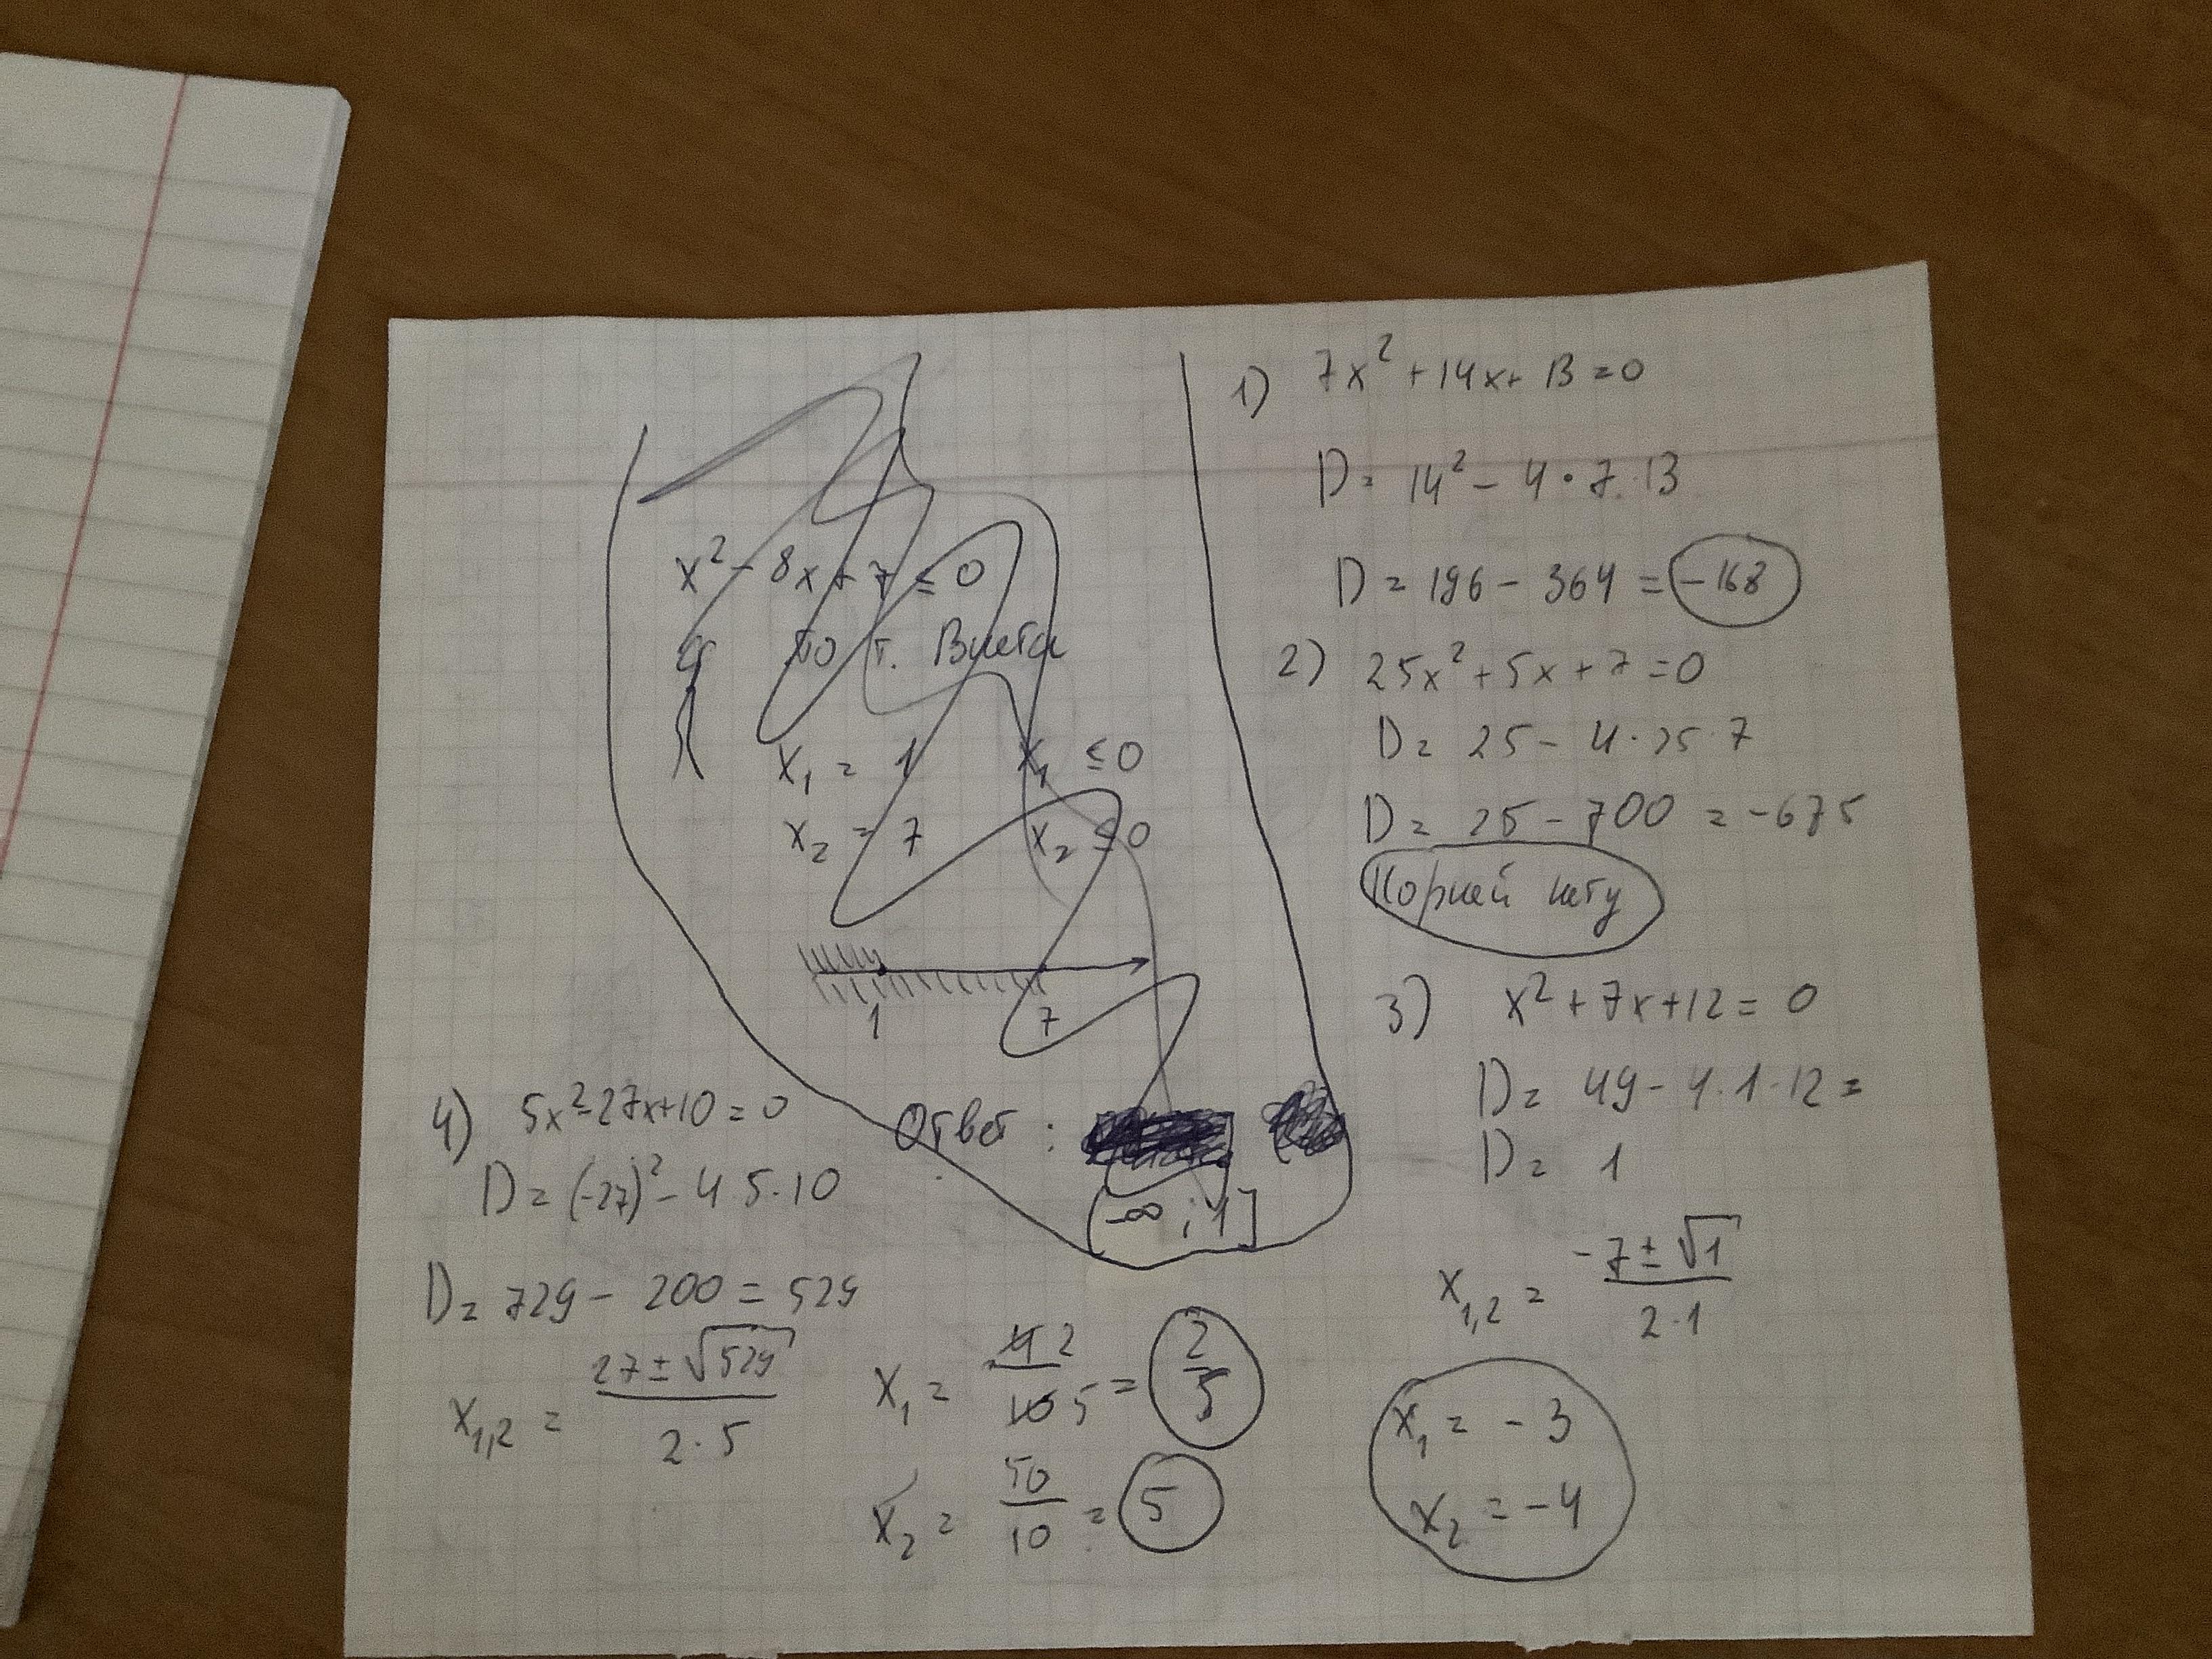 x² - 8x + 7 ≤ 0
по т. Виета
x₁ = 1 x₁ ≤ 0
x₂ = 7 x₂ ≤ 0
1 7
Ответ :
(-∞ ; 1]
1) 7x² + 14x + 13 = 0
D = 14² - 4 • 7 · 13
D = 196 - 364 = -168
2) 25x² + 5x + 7 = 0
D = 25 - 4 · 25 · 7
D = 25 - 700 = -675
Корней нету
3) x² + 7x + 12 = 0
D = 49 - 4 · 1 · 12 =
D = 1
x₁,₂ = (-7 ± √1) / (2 · 1)
x₁ = -3
x₂ = -4
4) 5x² - 27x + 10 = 0
D = (-27)² - 4 5 · 10
D = 729 - 200 = 529
x₁,₂ = (27 ± √529) / (2 · 5)
x₁ = 4 2 / 10 5 = 2/5
x₂ = 50/10 = 5